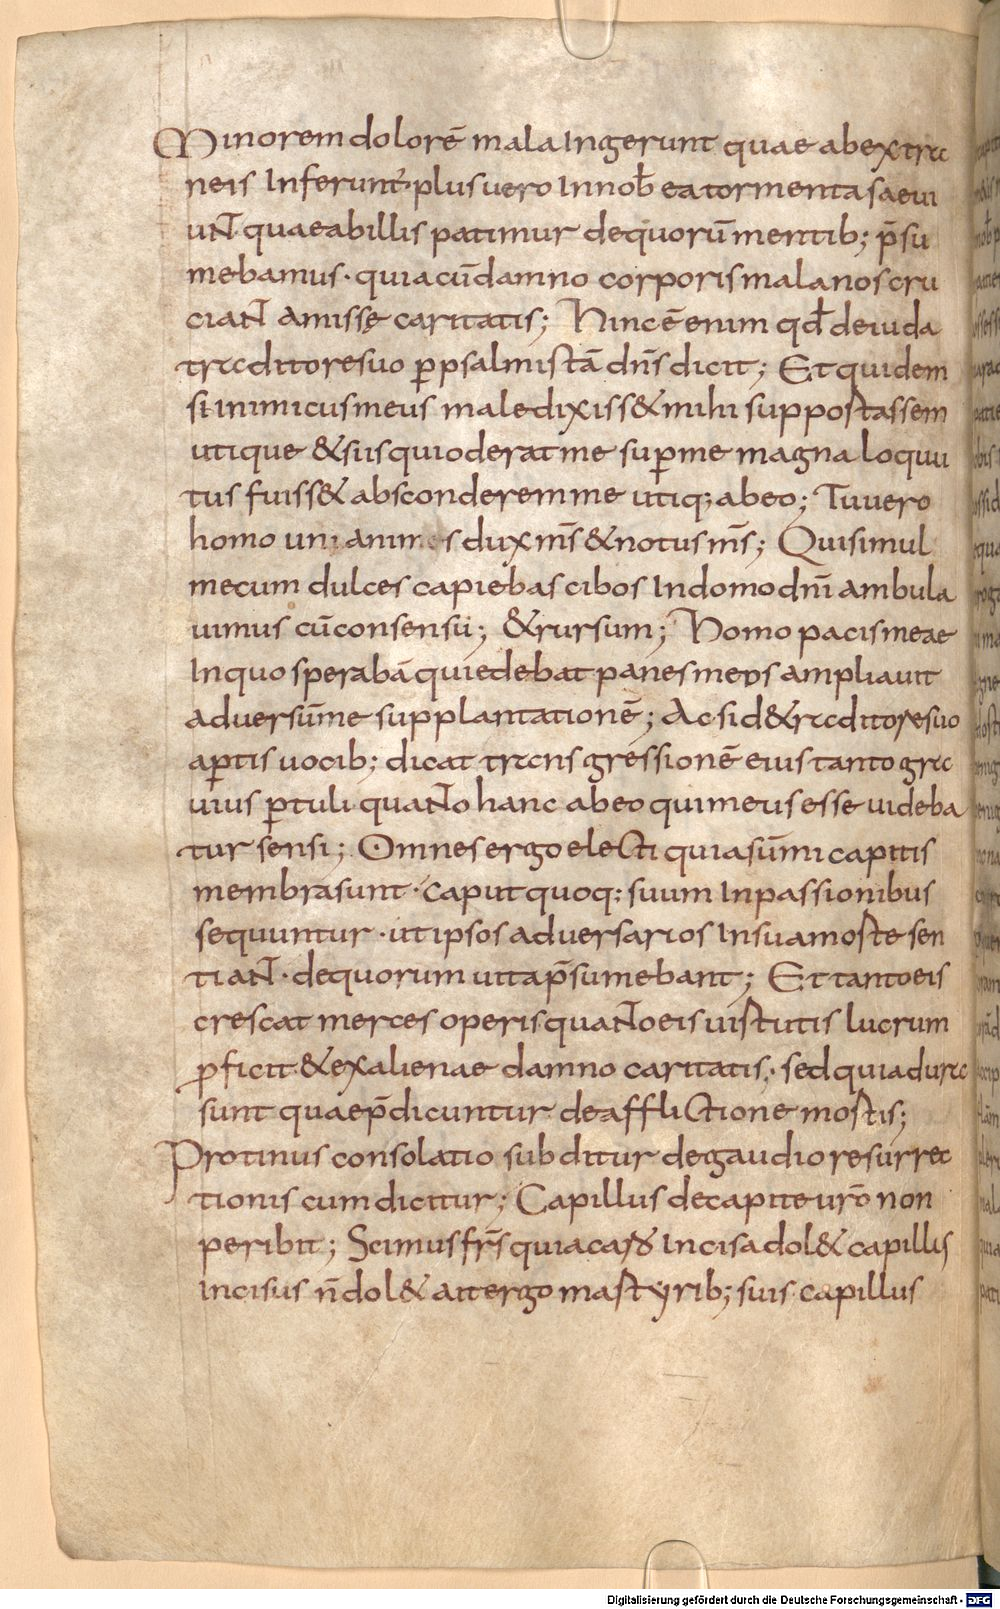 Minorem dolorē mala Ingerunt quae ab extra
neis Inferunt· plus vero In nob̄ ea tormenta saevi
uNT quae ab illis patimur de quorū mentib; p̄su
mebamus· quia cū damno corporis mala nos cru
ciaNT amissę caritatis; Hinc ē enim qđ de iuda
traditore suo p̲ psalmistā dn̄s dicit; Et quidem
si inimicus meus maledixiss& mihi supportassem
utique & si is qui oderat me sup̲ me magna loquu
tus fuiss& absconderem me utiq; ab eo; Tu vero
homo unianimes dux m̄s & notus m̄s; Qui simul
mecum dulces capiebas cibos In domo dn̄i ambula
uimus cū consensu; & rursum; Homo pacis meae
In quo sperabā qui edebat panes meos ampliauit
adversū me supplantationē; Ac si d& raditore suo
ap̲tis uocib; dicat transgressionē eius tanto gra
uius p̲tuli quaNTo hanc ab eo qui meus esse uideba
tur sensi; Omnes ergo electi quia sūmi capitis
membra sunt· caput quoq; suum In passionibus
sequuntur· ut ipsos adversarios In sua morte sen
tiaNT· de quorum uita p̄sumebant; Et tanto eis
crescat merces operis quaNTo eis uirtutis lucrum
p̲ficit & ex alienae damno caritatis; sed quia dura
sunt quae p̄dicuntur de afflictione mortis;
Protinus consolatio subditur de gaudio resurrec
tionis cum dicitur; Capillus de capite ur̄o non
peribit; Scimus fr̄s quia caro Incisa dol& capillis
incisus n̄ dol& ait ergo martyrib; suis capillus
Digitalisierung gefördert durch die Deutsche Forschungsgemeinschaft - DFG